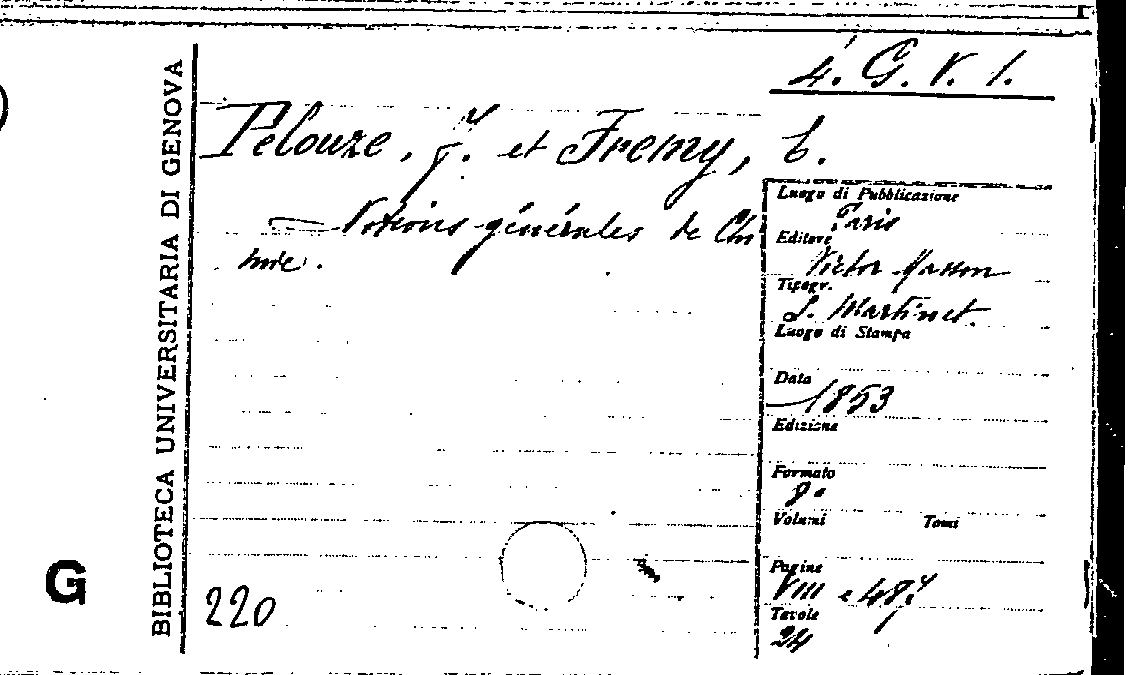 4. G. V. 1.
Pelouze, J. et Fremy, E.
— Notions générales de Chi
mie.
Luogo di Pubblicazione
Paris
Editore
Victor Masson
Tipogr.
L. Martinet.
Luogo di Stampa
Data
1853
Edizione
Formato
8°
Volumi Tomi
Pagine
VIII e
Tavole
24
220
BIBLIOTECA UNIVERSITARIA DI GENOVA
G